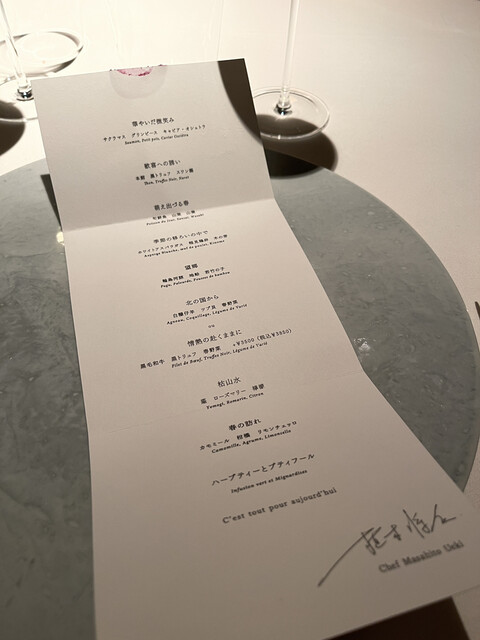 華やいだ微笑み
サクラマス グリンピース キャビア・オシェトラ
Saumon, Petit pois, Caviar Osciètra
歓喜への誘い
本鮪 黒トリュフ
Thon, Truffes Noir,
萌え出づる春
山菜
季節の移ろいの中で
ホワイトアスパラガス
Asperge Blanche, œuf de poulet, Kinome
望郷
蛤 若竹の子
Fugu, Palourde, Pousses de bambou
北の国から
白糠仔羊 ツブ貝 春野菜
Agneau, Coquillage, Légume de Varié
ou
情熱の赴くままに
黒毛和牛 黒トリュフ 春野菜 +¥3500 (税込¥3850)
Filet de Bœuf, Truffes Noir, Légume de Varié
枯山水
蓬 ローズマリー 檸檬
Yomogi, Romarin, Citron
春の訪れ
カモミール 柑橘 リモンチェッロ
Camomille, Agrume, Limoncello
ハーブティーとプティフール
Infusion vert et Mignardises
C'est tout pour aujourd'hui
Chef Masahito Ueki